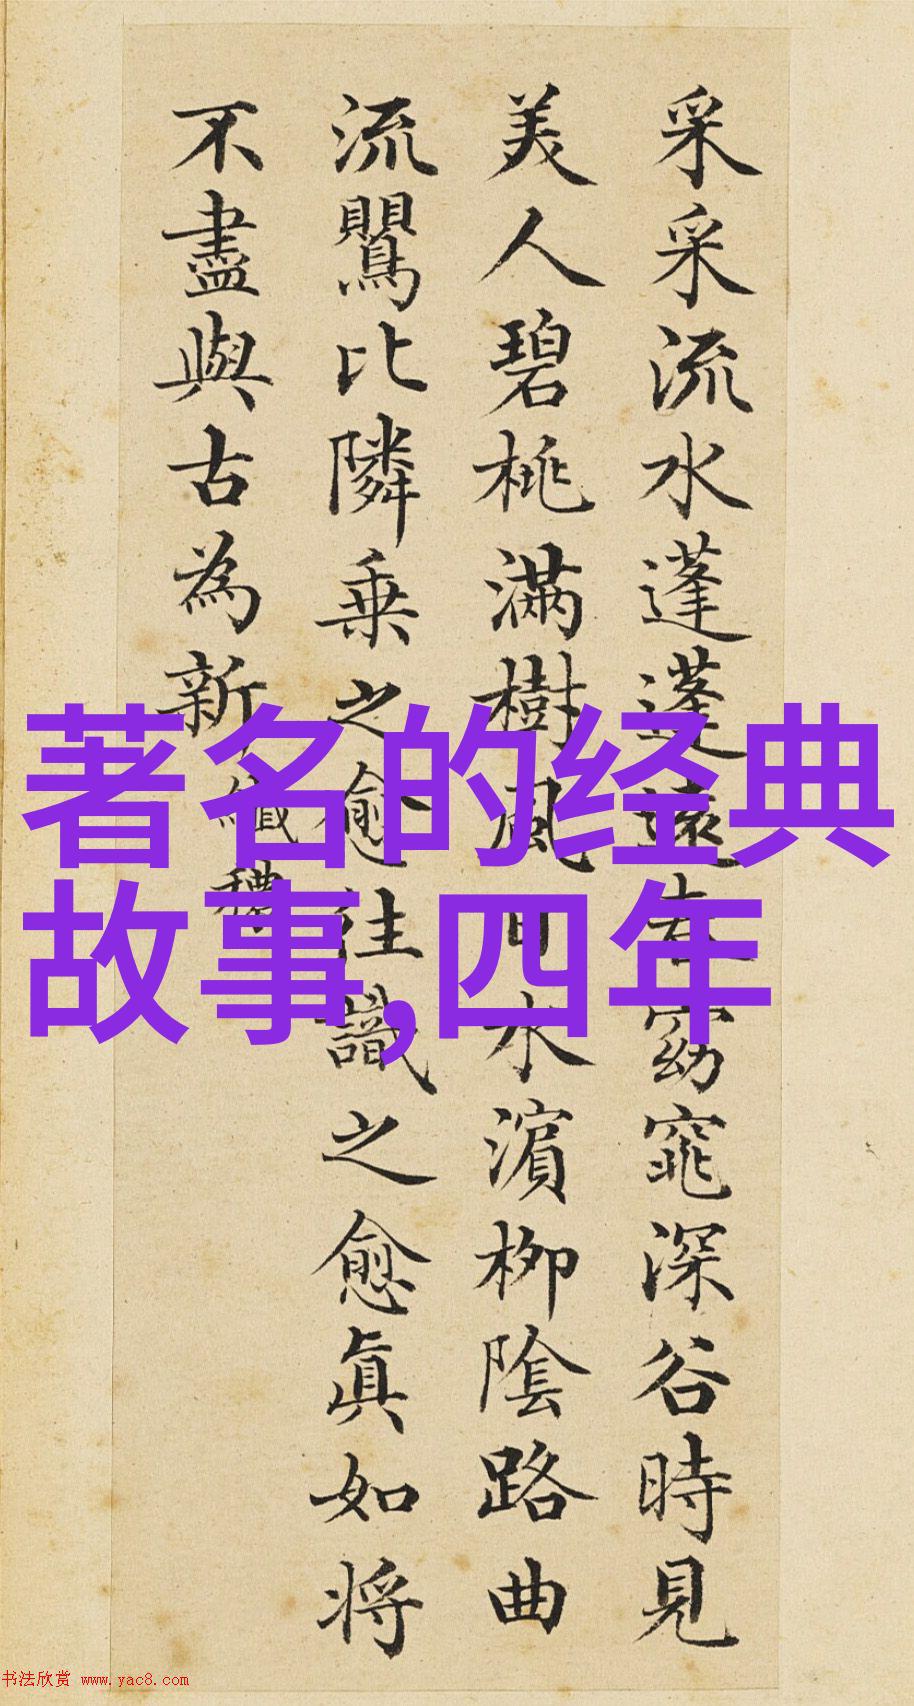 采采流水蓬蓬遠窈窕深谷時見
美人碧桃滿樹風日水濱柳陰路曲
流鸎比隣乗之愈往識之愈眞如将
不盡與古為新 纖穠
著名的经典
故事,四年
书法欣赏 www.yac8.com